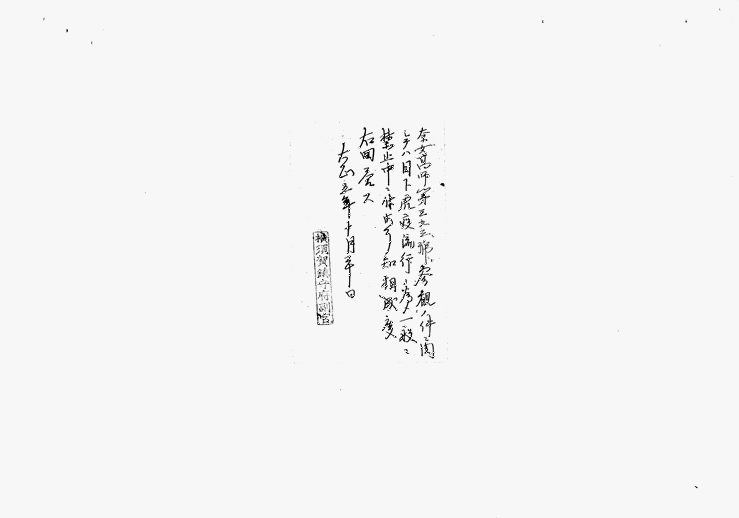 奈女高師第三九三号参観ノ件関
シテハ目下虎疫流行ノ為メ一般ニ
禁止中ニ候間了知相成度
右回答ス
大正五年十月廿一日
横須賀鎮守府副官